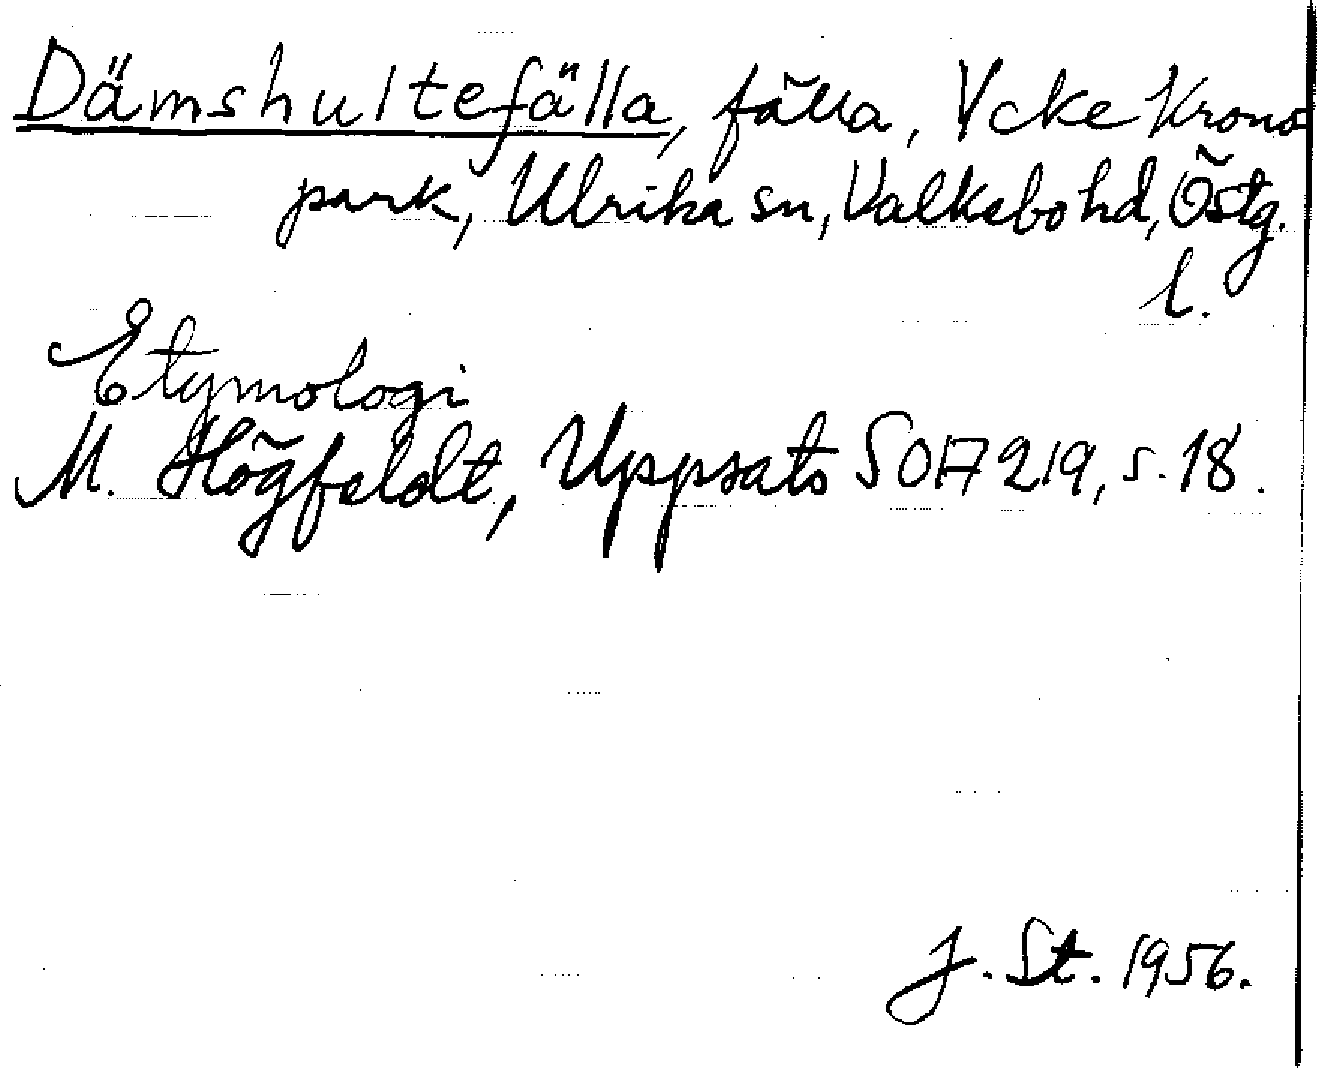 Dämshultefälla, fälla, Ycke Krono-
park, Ulrika sn, Valkebo hd, Östg.
l.
Etymologi
M. Högfeldt, Uppsats SOH 219, s. 18.
J. St. 1956.